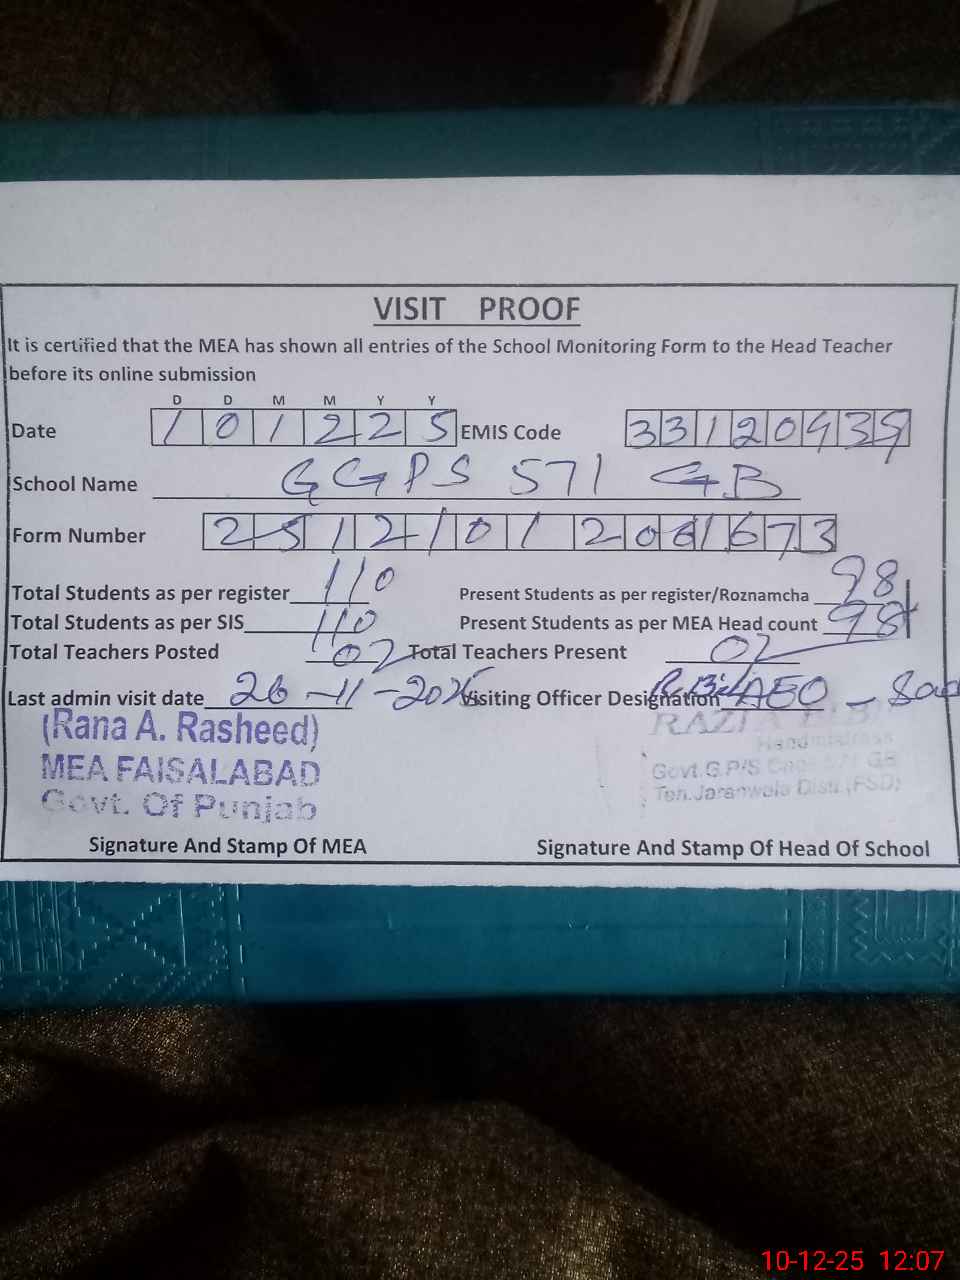 VISIT PROOF
It is certified that the MEA has shown all entries of the School Monitoring Form to the Head Teacher
before its online submission
D D M M Y Y
Date 1 0 1 2 2 5 EMIS Code 3 3 1 2 0 9 3 9
School Name GGPS 571 GB
Form Number 2 5 1 2 1 0 1 2 0 6 1 6 7 3
Total Students as per register 110 Present Students as per register/Roznamcha 98
Total Students as per SIS 110 Present Students as per MEA Head count 98
Total Teachers Posted 02 Total Teachers Present 02
Last admin visit date 26-11-2025 Visiting Officer Designation AEO -
(Rana A. Rasheed)
MEA FAISALABAD
Govt. Of Punjab
RAZIA BIBI
Headmistress
Govt.G.P/S 571 GB
Teh.Jaranwala Distt.(FSD)
Signature And Stamp Of MEA Signature And Stamp Of Head Of School
10-12-25 12:07